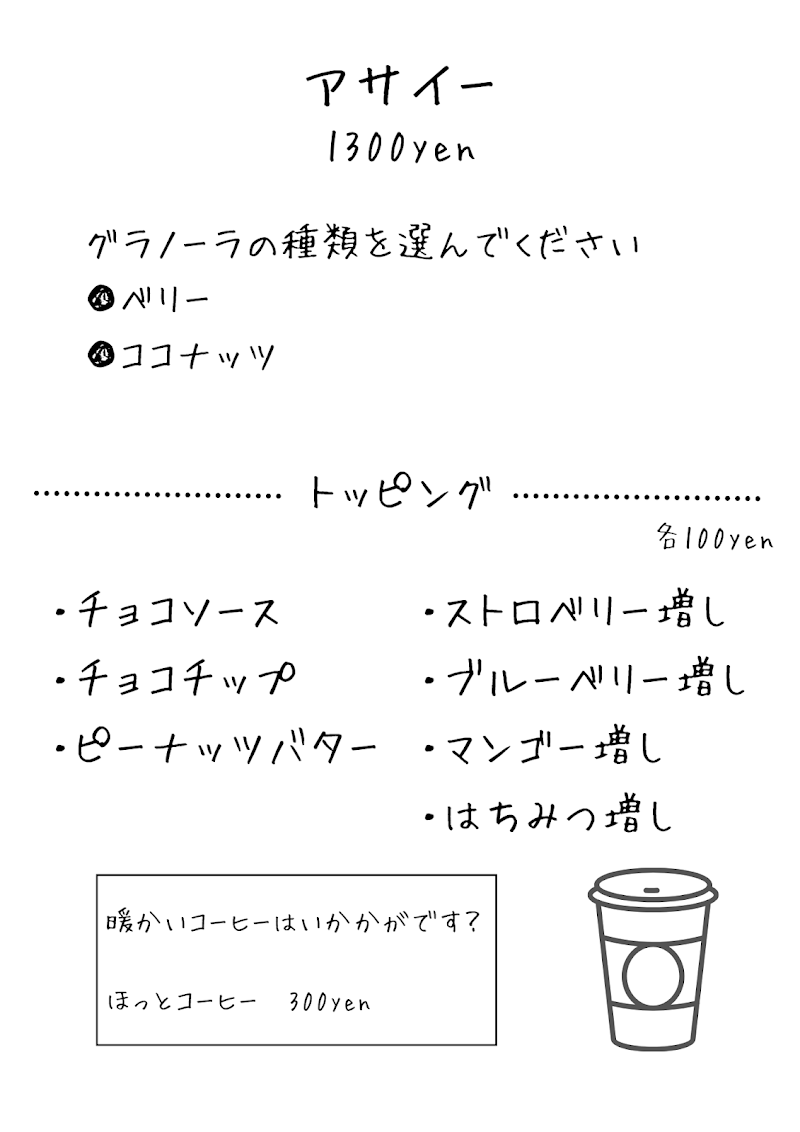 アサイー
1300yen
グラノーラの種類を選んでください
●ベリー
●ココナッツ
トッピング
各100yen
・チョコソース
・チョコチップ
・ピーナッツバター
・ストロベリー増し
・ブルーベリー増し
・マンゴー増し
・はちみつ増し
暖かいコーヒーはいかかがです?
ほっとコーヒー　300yen